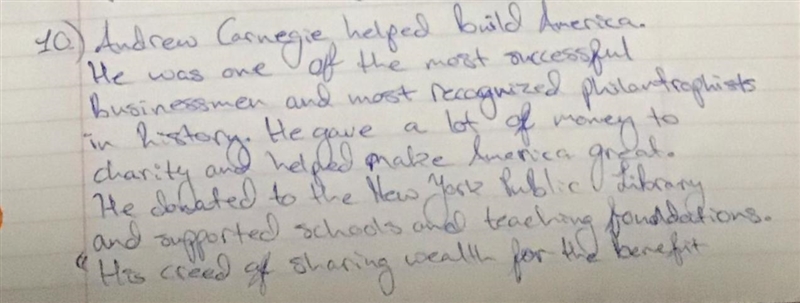 10.) Andrew Carnegie helped build America.
He was one of the most successful
businessmen and most recognized philantrophists
in history. He gave a lot of money to
charity and helped make America great.
He donated to the New York Public Library
and supported schools and teaching founddations.
"His creed of sharing wealth for the benefit